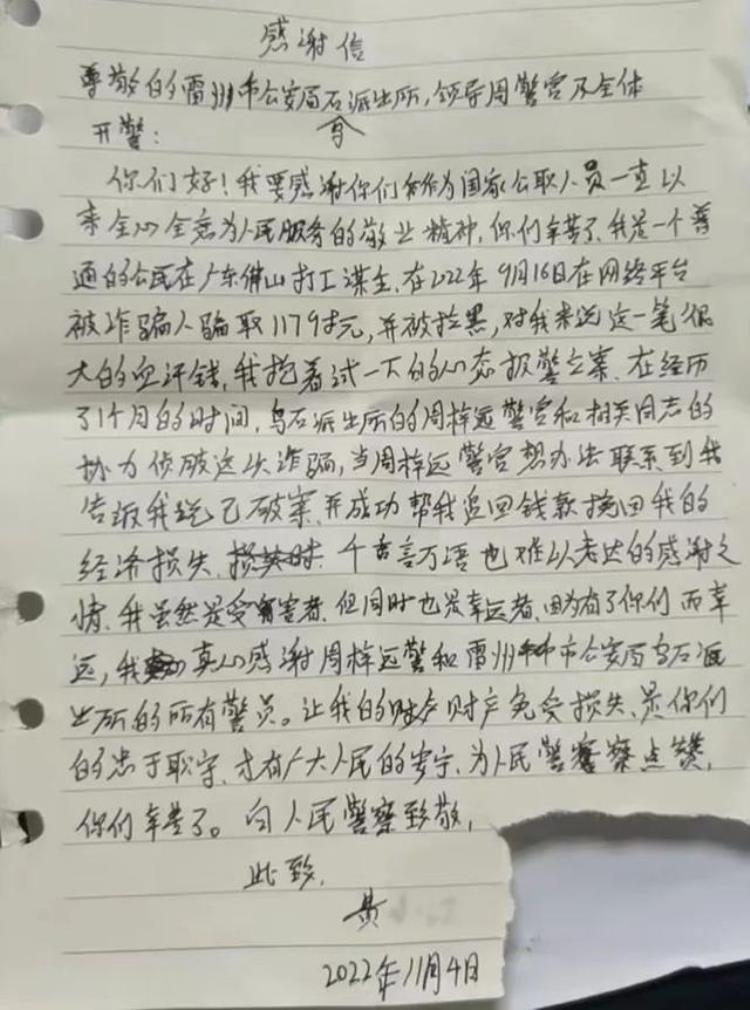 感谢信
尊敬的雷州市公安局石派出所,领导周警官及全体
乌
干警:
你们好!我要感谢你们作为国家公职人员一直以
来全心全意为人民服务的敬业精神,你们辛苦了,我是一个普
通的公民在广东佛山打工谋生,在2022年9月16日在网络平台
被诈骗人骗取1179元,并被拉黑,对我来说这一笔很
大的血汗钱,我抱着试一下的心态报警立案,在经历
了1个月的时间,乌石派出所的周梓远警官和相关同志的
协力侦破这次诈骗,当周梓远警官想办法联系到我
告诉我说已破案,并成功帮我追回钱款挽回我的
经济损失,千言万语也难以表达的感谢之
情,我虽然是受害者,但同时也是幸运者,因为有了你们而幸
运,我真心感谢周梓远警和雷州市公安局乌石派
出所的所有警员。让我的财产免受损失,是你们
的忠于职守,才有广大人民的安宁,为人民警察点赞,
你们辛苦了。向人民警察致敬,
此致,
黄
2022年11月4日